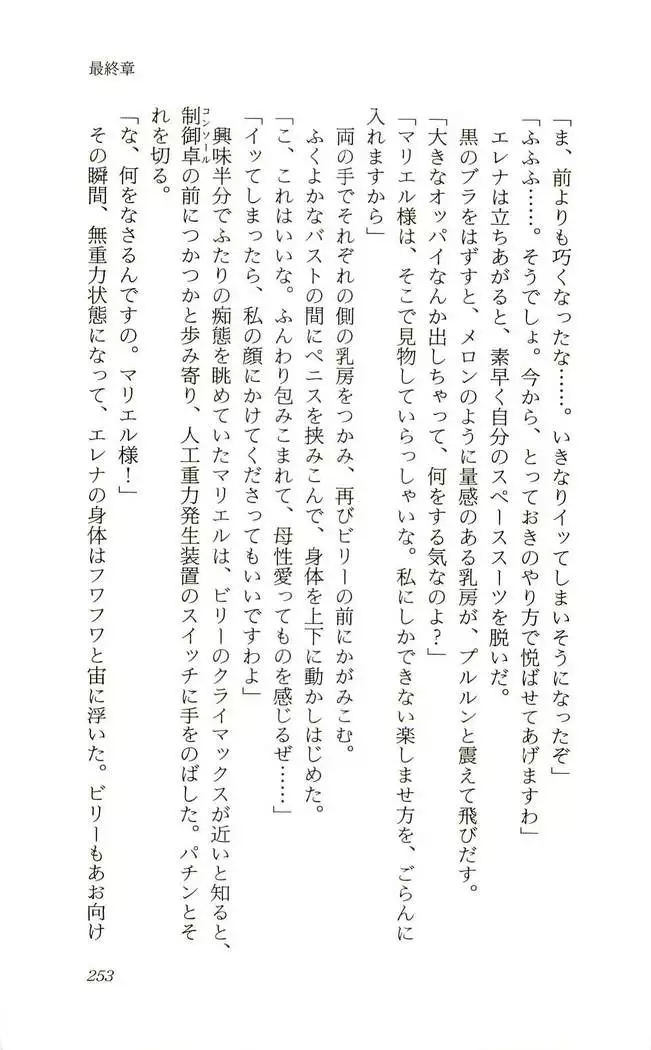 最終章
「ま、前よりも巧くなったな……。いきなりイッてしまいそうになったぞ」
「ふふふ……。そうでしょ。今から、とっておきのやり方で悦ばせてあげますわ」
エレナは立ちあがると、素早く自分のスペーススーツを脱いだ。
黒のブラをはずすと、メロンのように量感のある乳房が、プルルンと震えて飛びだす。
「大きなオッパイなんか出しちゃって、何をする気なのよ?」
「マリエル様は、そこで見物していらっしゃいな。私にしかできない楽しませ方を、ごらんに
入れますから」
両の手でそれぞれの側の乳房をつかみ、再びビリーの前にかがみこむ。
ふくよかなバストの間にペニスを挟みこんで、身体を上下に動かしはじめた。
「こ、これはいいな。ふんわり包みこまれて、母性愛ってものを感じるぜ……」
「イッてしまったら、私の顔にかけてくださってもいいですわよ」
興味半分でふたりの痴態を眺めていたマリエルは、ビリーのクライマックスが近いと知ると、
コンソール
制御卓の前につかつかと歩み寄り、人工重力発生装置のスイッチに手をのばした。パチンとそ
れを切る。
「な、何をなさるんですの。マリエル様!」
その瞬間、無重力状態になって、エレナの身体はフワフワと宙に浮いた。ビリーもあお向け
253